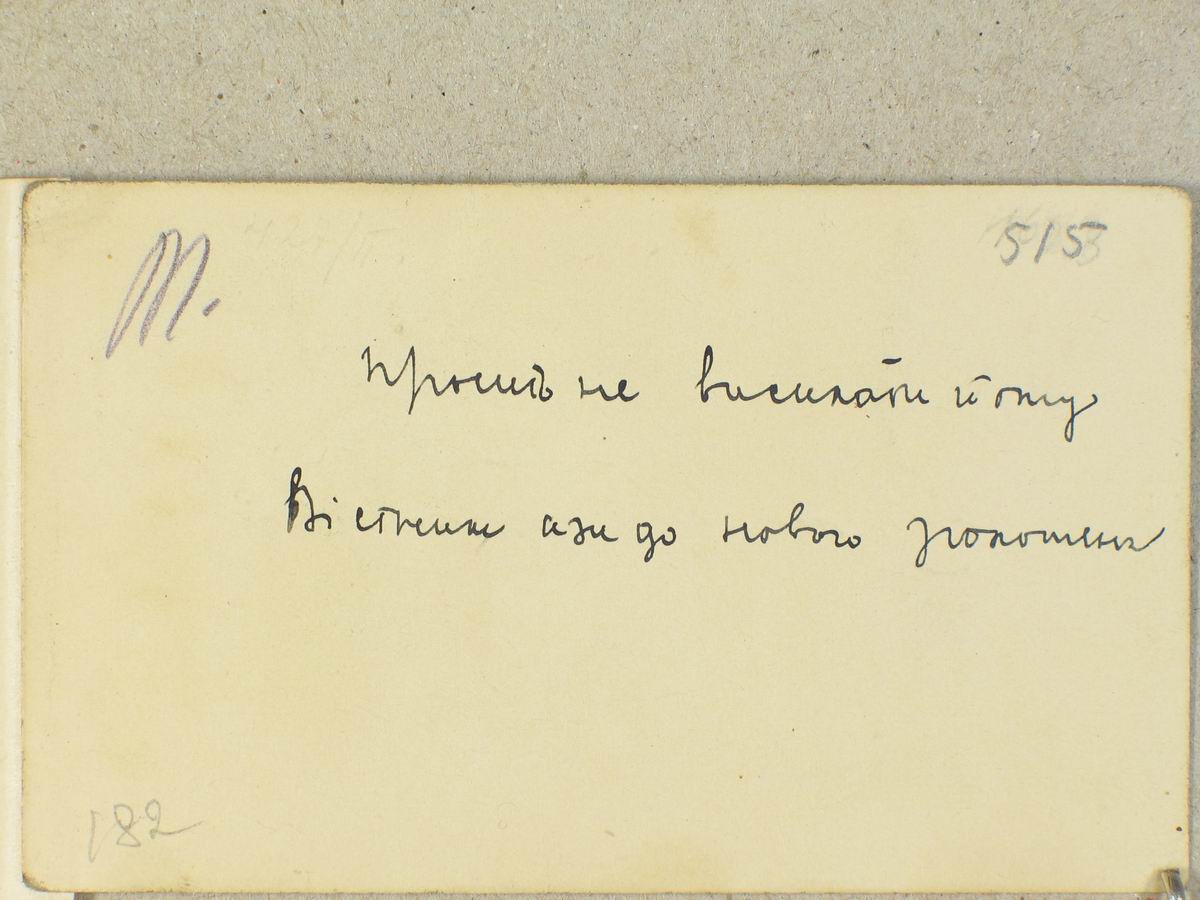 Т.
515
просить не висилати йому
Вістник аж до нового зголошеня
182